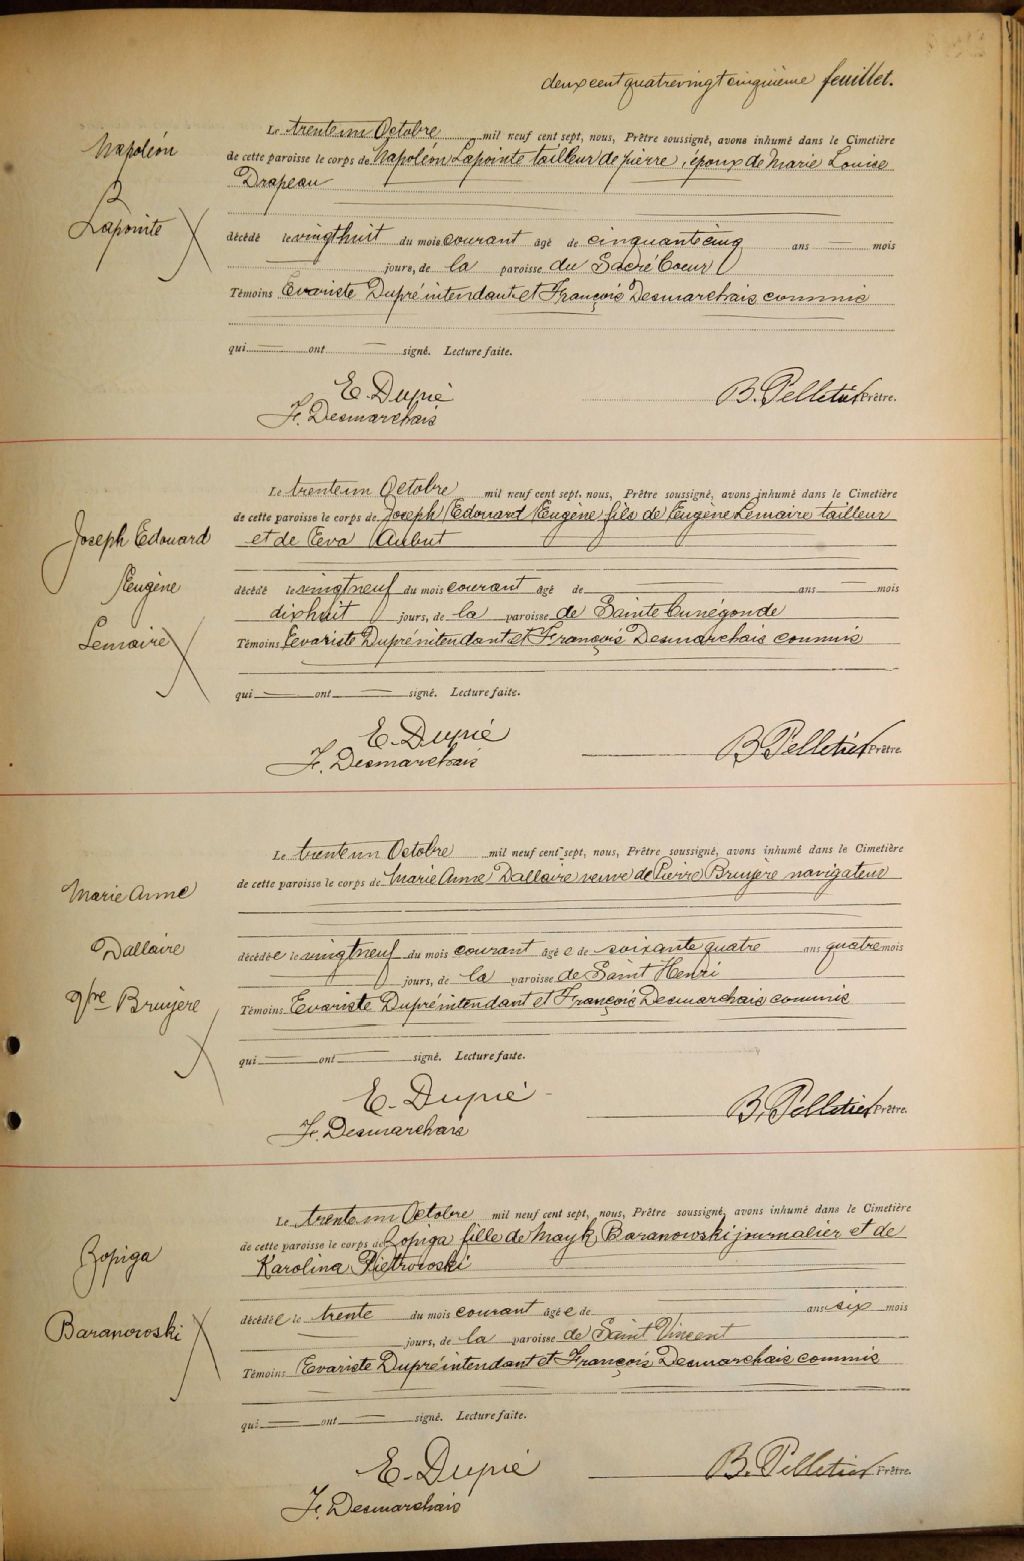 deux cent quatrevingt cinquième feuillet.
Napoléon
Lapointe
Le trente un Octobre mil neuf cent sept, nous, Prêtre soussigné, avons inhumé dans le Cimetière
de cette paroisse le corps de Napoléon Lapointe tailleur de pierre, époux de Marie Louise
Drapeau
décédé le vingthuit du mois courant âgé de cinquantecinq ans — mois
jours, de la paroisse du Sacré Coeur
Témoins Evariste Dupré intendant et François Desmarchais commis
qui — ont — signé. Lecture faite.
E. Dupré
F. Desmarchais
B. Pelletier Prêtre.
Joseph Edouard
Eugène
Lemaire
Le trente un Octobre mil neuf cent sept, nous, Prêtre soussigné, avons inhumé dans le Cimetière
de cette paroisse le corps de Joseph Edouard Eugène fils de Eugène Lemaire tailleur
et de Eva Aubut
décédé le vingtneuf du mois courant âgé de — ans — mois
dixhuit jours, de la paroisse de Sainte Cunégonde
Témoins Evariste Dupré intendant et François Desmarchais commis
qui — ont — signé. Lecture faite.
E. Dupré
F. Desmarchais
B. Pelletier Prêtre.
Marie Anne
Dallaire
Vve Bruyère
Le trente un Octobre mil neuf cent sept, nous, Prêtre soussigné, avons inhumé dans le Cimetière
de cette paroisse le corps de Marie Anne Dallaire veuve de Pierre Bruyère navigateur
décédée le vingtneuf du mois courant âgée de soixante quatre ans quatre mois
jours, de la paroisse de Saint Henri
Témoins Evariste Dupré intendant et François Desmarchais commis
qui — ont — signé. Lecture faite.
E. Dupré
F. Desmarchais
B. Pelletier Prêtre.
Zopiga
Baranowski
Le trente un Octobre mil neuf cent sept, nous, Prêtre soussigné, avons inhumé dans le Cimetière
de cette paroisse le corps de Zopiga fille de Mayk Baranowski journalier et de
Karolina Pietrowski
décédée le trente du mois courant âgée de — ans six mois
— jours, de la paroisse de Saint Vincent
Témoins Evariste Dupré intendant et François Desmarchais commis
qui — ont — signé. Lecture faite.
E. Dupré
F. Desmarchais
B. Pelletier Prêtre.